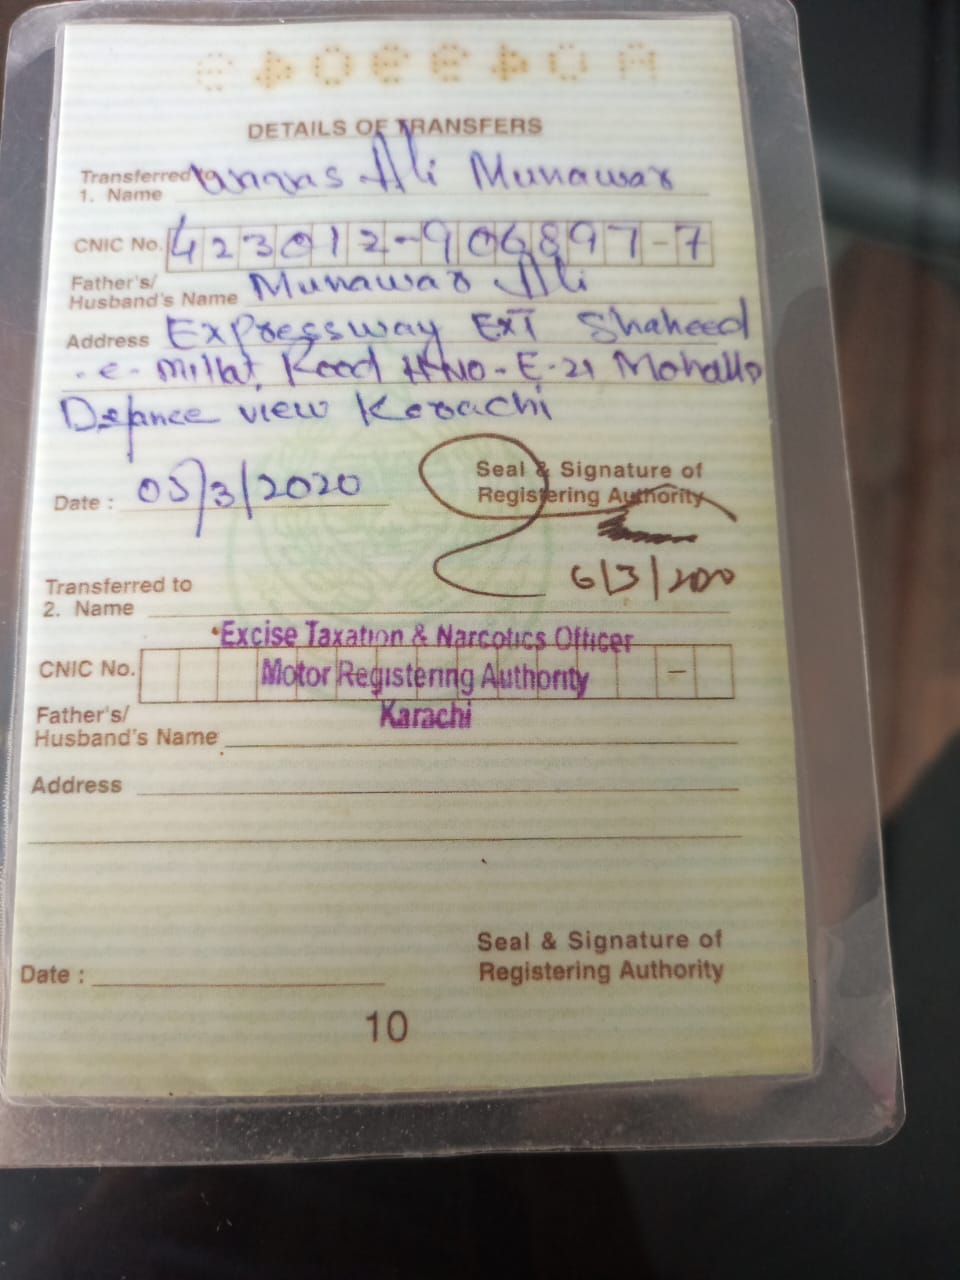 DETAILS OF TRANSFERS
Transferred to
1. Name Ali Munawar
CNIC No. 423012-906897-7
Father's/
Husband's Name Munawar Ali
Address Expressway EXT Shaheed
-e- Millat Road HNO-E-21 Mohalla
Defance view Karachi
Date : 05/3/2020
Seal & Signature of
Registering Authority
6/3/2020
Transferred to
2. Name
Excise Taxation & Narcotics Officer
CNIC No. -
Motor Registering Authority
Karachi
Father's/
Husband's Name
Address
Seal & Signature of
Registering Authority
Date :
10